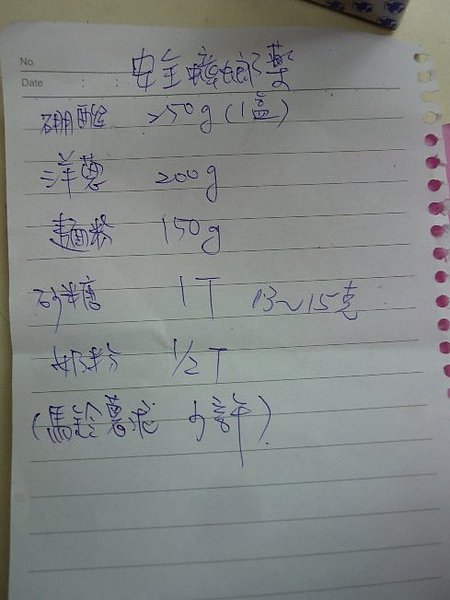 No.
Date : :
安全蟑螂藥
硼酸 250g (1盒)
洋蔥 200g
麵粉 150g
砂糖 1T 13~15克
奶粉 1/2T
(馬鈴薯泥 少許)